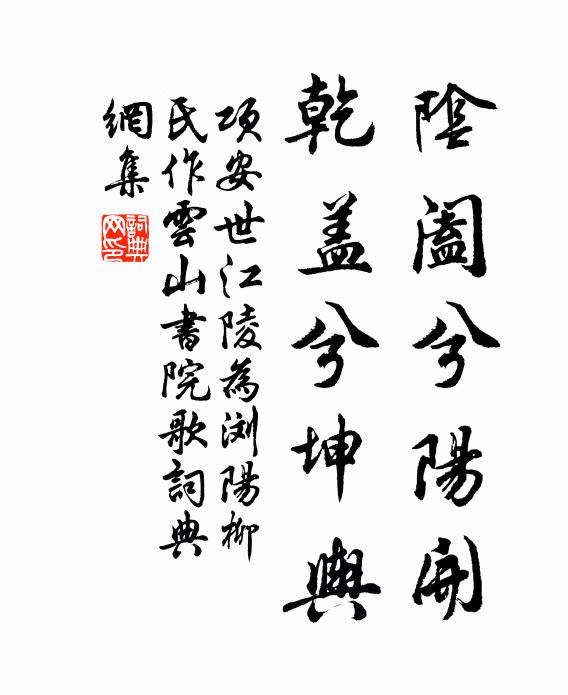 陰闔兮陽開
乾蓋兮坤輿
項安世江陵為浏陽柳
氏作雲山書院歌詞典
網集
詞典網印